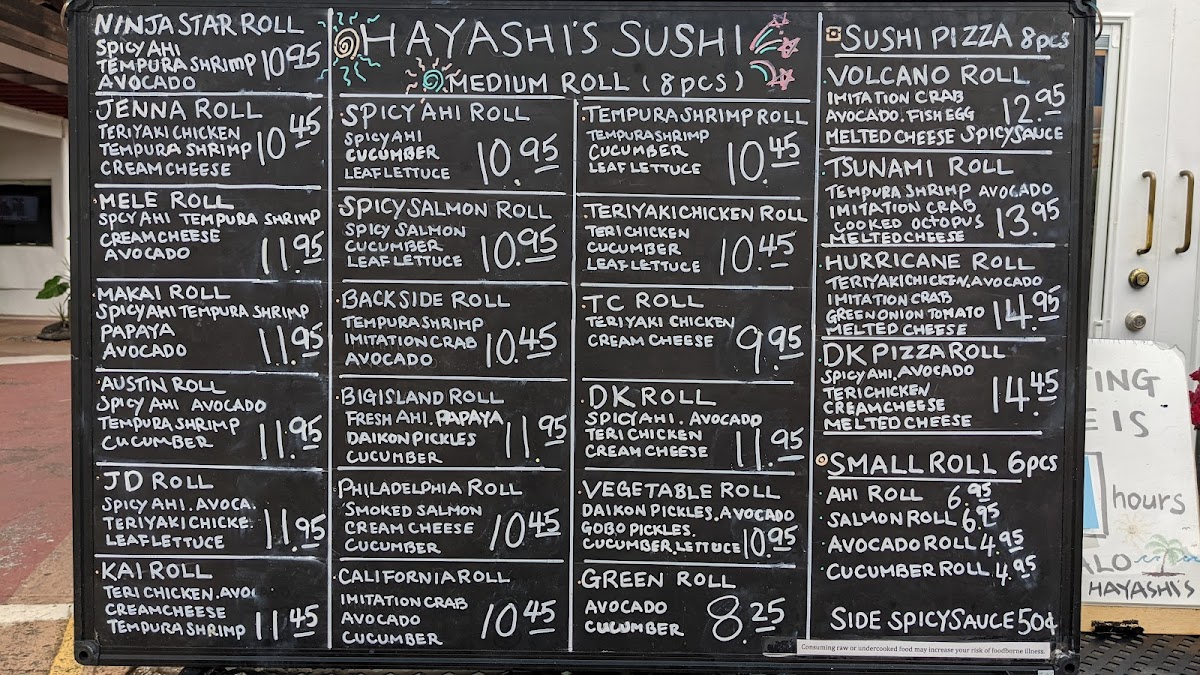 NINJA STAR ROLL
SPICY AHI
TEMPURA SHRIMP 10.95
AVOCADO
JENNA ROLL
TERIYAKI CHICKEN
TEMPURA SHRIMP 10.45
CREAM CHEESE
MELE ROLL
SPCY AHI TEMPURA SHRIMP
CREAM CHEESE
AVOCADO 11.95
MAKAI ROLL
SPICY AHI TEMPURA SHRIMP
PAPAYA
AVOCADO 11.95
AUSTIN ROLL
SPICY AHI AVOCADO
TEMPURA SHRIMP
CUCUMBER 11.95
JD ROLL
SPICY AHI. AVOCA.
TERIYAKI CHICKE.
LEAF LETTUCE 11.95
KAI ROLL
TERI CHICKEN. AVO
CREAM CHEESE
TEMPURA SHRIMP 11.45
HAYASHI'S SUSHI
MEDIUM ROLL (8pcs)
SPICY AHI ROLL
SPICY AHI
CUCUMBER 10.95
LEAF LETTUCE
SPICY SALMON ROLL
SPICY SALMON
CUCUMBER 10.95
LEAF LETTUCE
BACKSIDE ROLL
TEMPURA SHRIMP
IMITATION CRAB 10.45
AVOCADO
BIG ISLAND ROLL
FRESH AHI. PAPAYA
DAIKON PICKLES 11.95
CUCUMBER
PHILADELPHIA ROLL
SMOKED SALMON
CREAM CHEESE 10.45
CUCUMBER
CALIFORNIA ROLL
IMITATION CRAB
AVOCADO 10.45
CUCUMBER
TEMPURA SHRIMP ROLL
TEMPURA SHRIMP
CUCUMBER 10.45
LEAF LETTUCE
TERIYAKI CHICKEN ROLL
TERI CHICKEN
CUCUMBER 10.45
LEAF LETTUCE
TC ROLL
TERIYAKI CHICKEN
CREAM CHEESE 9.95
DK ROLL
SPICY AHI. AVOCADO
TERI CHICKEN
CREAM CHEESE 11.95
VEGETABLE ROLL
DAIKON PICKLES. AVOCADO
GOBO PICKLES.
CUCUMBER, LETTUCE 10.95
GREEN ROLL
AVOCADO
CUCUMBER 8.25
SUSHI PIZZA 8pcs
VOLCANO ROLL
IMITATION CRAB
AVOCADO. FISH EGG 12.95
MELTED CHEESE SPICY SAUCE
TSUNAMI ROLL
TEMPURA SHRIMP AVOCADO
IMITATION CRAB
COOKED OCTOPUS 13.95
MELTED CHEESE
HURRICANE ROLL
TERIYAKI CHICKEN, AVOCADO
IMITATION CRAB
GREEN ONION TOMATO 14.95
MELTED CHEESE
DK PIZZA ROLL
SPICY AHI, AVOCADO
TERI CHICKEN
CREAM CHEESE 14.45
MELTED CHEESE
SMALL ROLL 6pcs
AHI ROLL 6.95
SALMON ROLL 6.95
AVOCADO ROLL 4.95
CUCUMBER ROLL 4.95
SIDE SPICY SAUCE 50¢
Consuming raw or undercooked food may increase your risk of foodborne illness.
TING
E IS
hours
ALO
HAYASHI'S